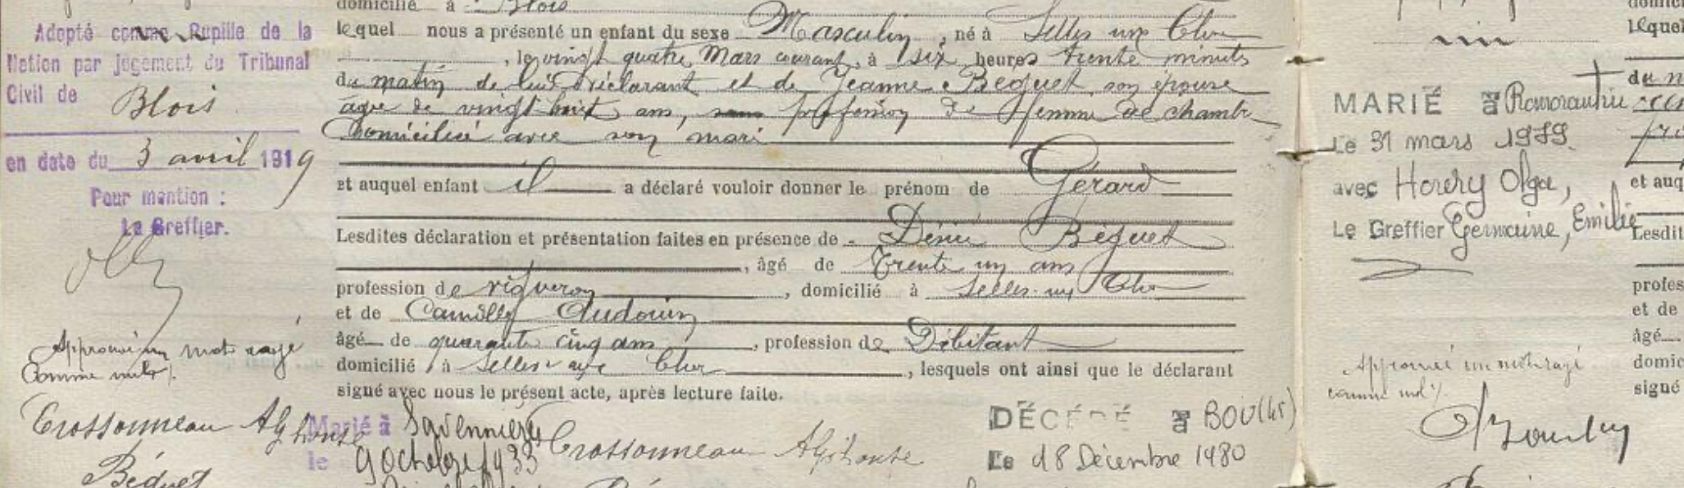 Adopté comme Pupille de la
Nation par jugement du Tribunal
Civil de Blois
en date du 3 avril 1919
Pour mention :
Le Greffier.
Approuvé un mot rayé
Comme nul
Crossonneau Alphonse
Béguet
domicilié à Blois
lequel nous a présenté un enfant du sexe Masculin, né à Selles sur Cher
, le vingt quatre Mars courant, à six heures trente minutes
du matin de lui déclarant et de Jeanne Béguet son épouse
agée de vingt huit ans, sans profession de femme de chambre
domiciliée avec son mari
et auquel enfant il a déclaré vouloir donner le prénom de Gérard
Lesdites déclaration et présentation faites en présence de Désiré Béguet
, âgé de Trente un ans
profession de vigneron, domicilié à Selles sur Cher
et de Camille Audouin
âgé de quarante cinq ans, profession de Débitant
domicilié à Selles sur Cher, lesquels ont ainsi que le déclarant
signé avec nous le présent acte, après lecture faite.
Marié à
le 9 octobre 1933
Crossonneau Alphonse
DÉCÉDÉ à BOU (45)
Le 18 Décembre 1980
MARIÉ à Romorantin
Le 31 mars
avec Olga,
Le Greffier Germaine, Emilie
Approuvé un mot rayé
comme nul
lequel
du m
et auq
Lesdit
profes
et de
âgé
domic
signé